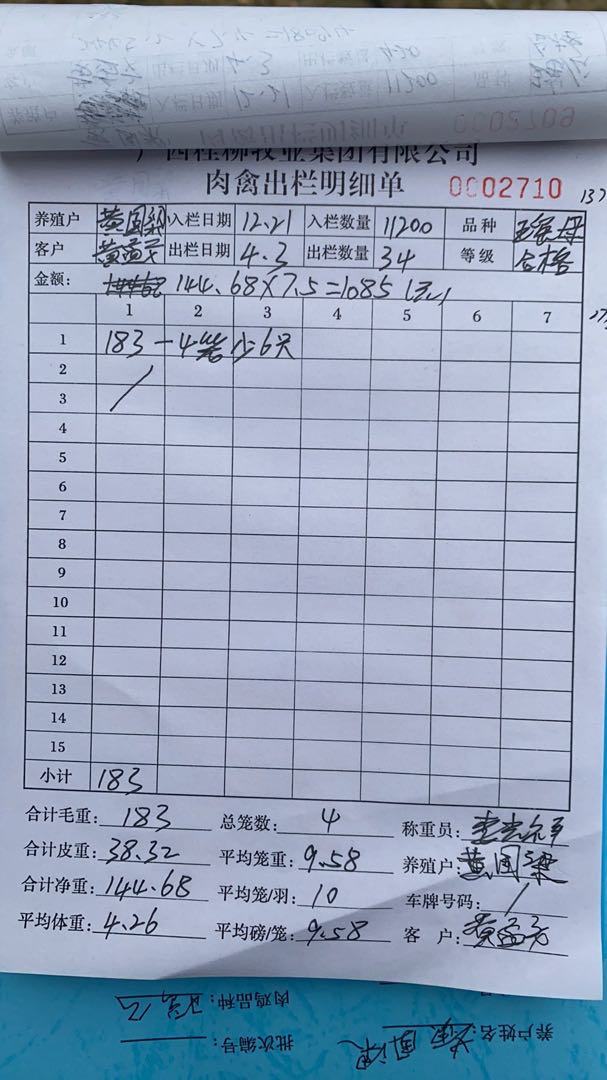 广西桂柳牧业集团有限公司
肉禽出栏明细单 0002710 137
养殖户 黄国梁 入栏日期 12.21 入栏数量 11200 品种
客户 黄孟云 出栏日期 4.3 出栏数量 34 等级 合格
金额: 144.68×7.5=1085
1 2 3 4 5 6 7
1 183-4笼 少6只
2
3
4
5
6
7
8
9
10
11
12
13
14
15
小计 183
合计毛重: 183 总笼数: 4 称重员:
合计皮重: 38.32 平均笼重: 9.58 养殖户: 黄国梁
合计净重: 144.68 平均笼/羽: 10 车牌号码: /
平均体重: 4.26 平均磅/笼: 9.58 客户: 黄孟云
肉鸡品种:
养户姓名: 黄国梁
批次编号: